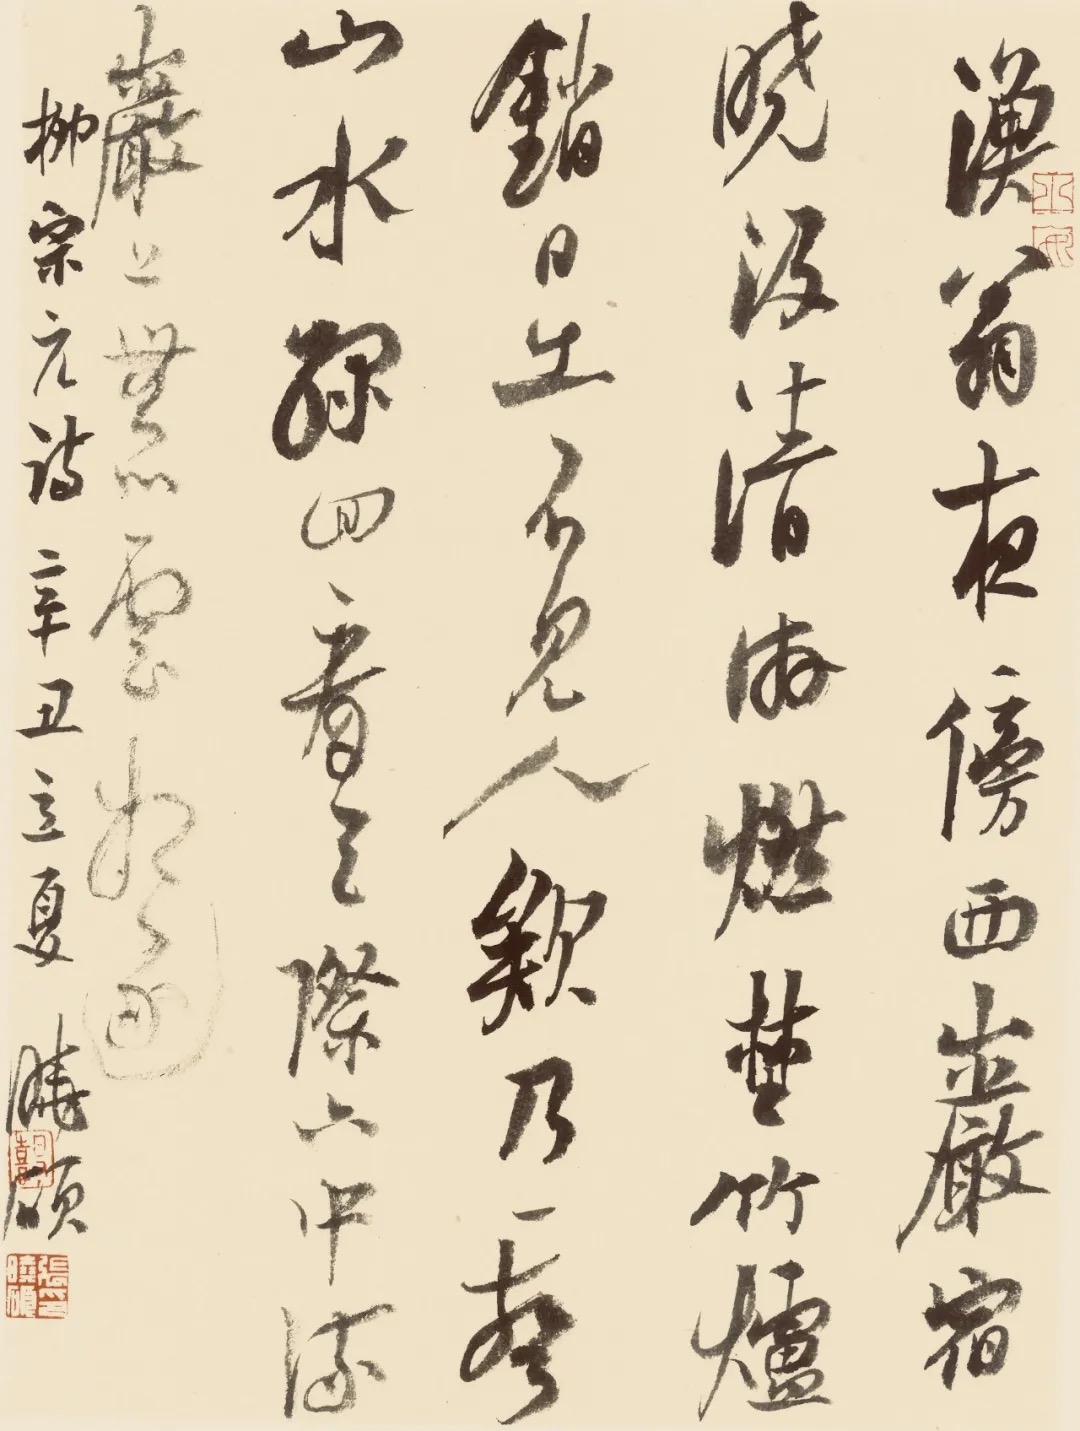 漁翁夜傍西巖宿
晓汲清湘燃楚竹爐
銷日出不見人欸乃一聲
山水綠回看天際下中流
巖上無心雲相逐
柳宗元詩 辛丑立夏 曉碩
張曉碩印